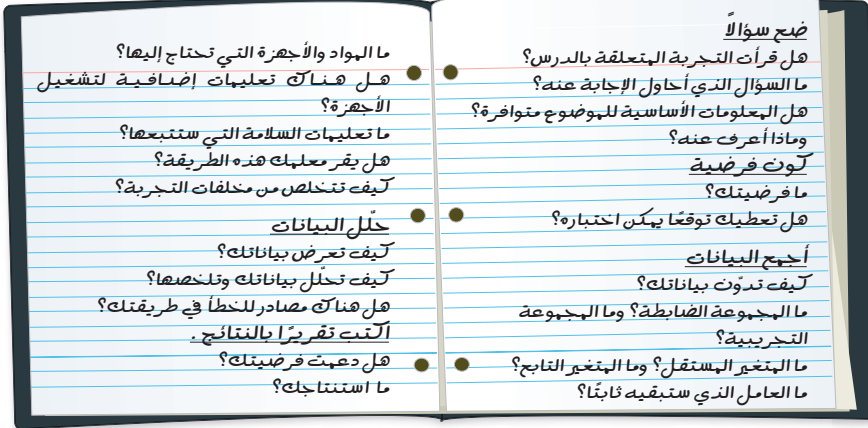 ضع سؤالاً
هل قرأت التجربة المتعلقة بالدرس؟
ما السؤال الذي أحاول الإجابة عنه؟
هل المعلومات الأساسية للموضوع متوافرة؟
وماذا أعرف عنه؟
كون فرضية
ما فرضيتك؟
هل تعطيك توقعًا يمكن اختباره؟
أجمع البيانات
كيف تدوّن بياناتك؟
ما المجموعة الضابطة؟ وما المجموعة
التجريبية؟
ما المتغير المستقل؟ وما المتغير التابع؟
ما العامل الذي ستبقيه ثابتًا؟
ما المواد والأجهزة التي تحتاج إليها؟
هل هناك تعليمات إضافية لتشغيل
الأجهزة؟
ما تعليمات السلامة التي ستتبعها؟
هل يقر معلمك هذه الطريقة؟
كيف تتخلص من مخلفات التجربة؟
حلّل البيانات
كيف تعرض بياناتك؟
كيف تحلّل بياناتك وتلخصها؟
هل هناك مصادر للخطأ في طريقتك؟
أكتب تقريرًا بالنتائج .
هل دعمت فرضيتك؟
ما استنتاجك؟